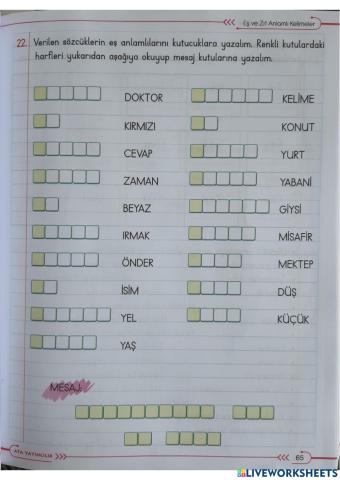 Eş ve Zıt Anlamlı Kelimeler
22. Verilen sözcüklerin eş anlamlılarını kutucuklara yazalım. Renkli kutulardaki
harfleri yukarıdan aşağıya okuyup mesaj kutularına yazalım.
DOKTOR KELİME
KIRMIZI KONUT
CEVAP YURT
ZAMAN YABANİ
BEYAZ GİYSİ
IRMAK MİSAFİR
ÖNDER MEKTEP
İSİM DÜŞ
YEL KÜÇÜK
YAŞ
MESAJ:
ATA YAYINCILIK 65
LIVEWORKSHEETS